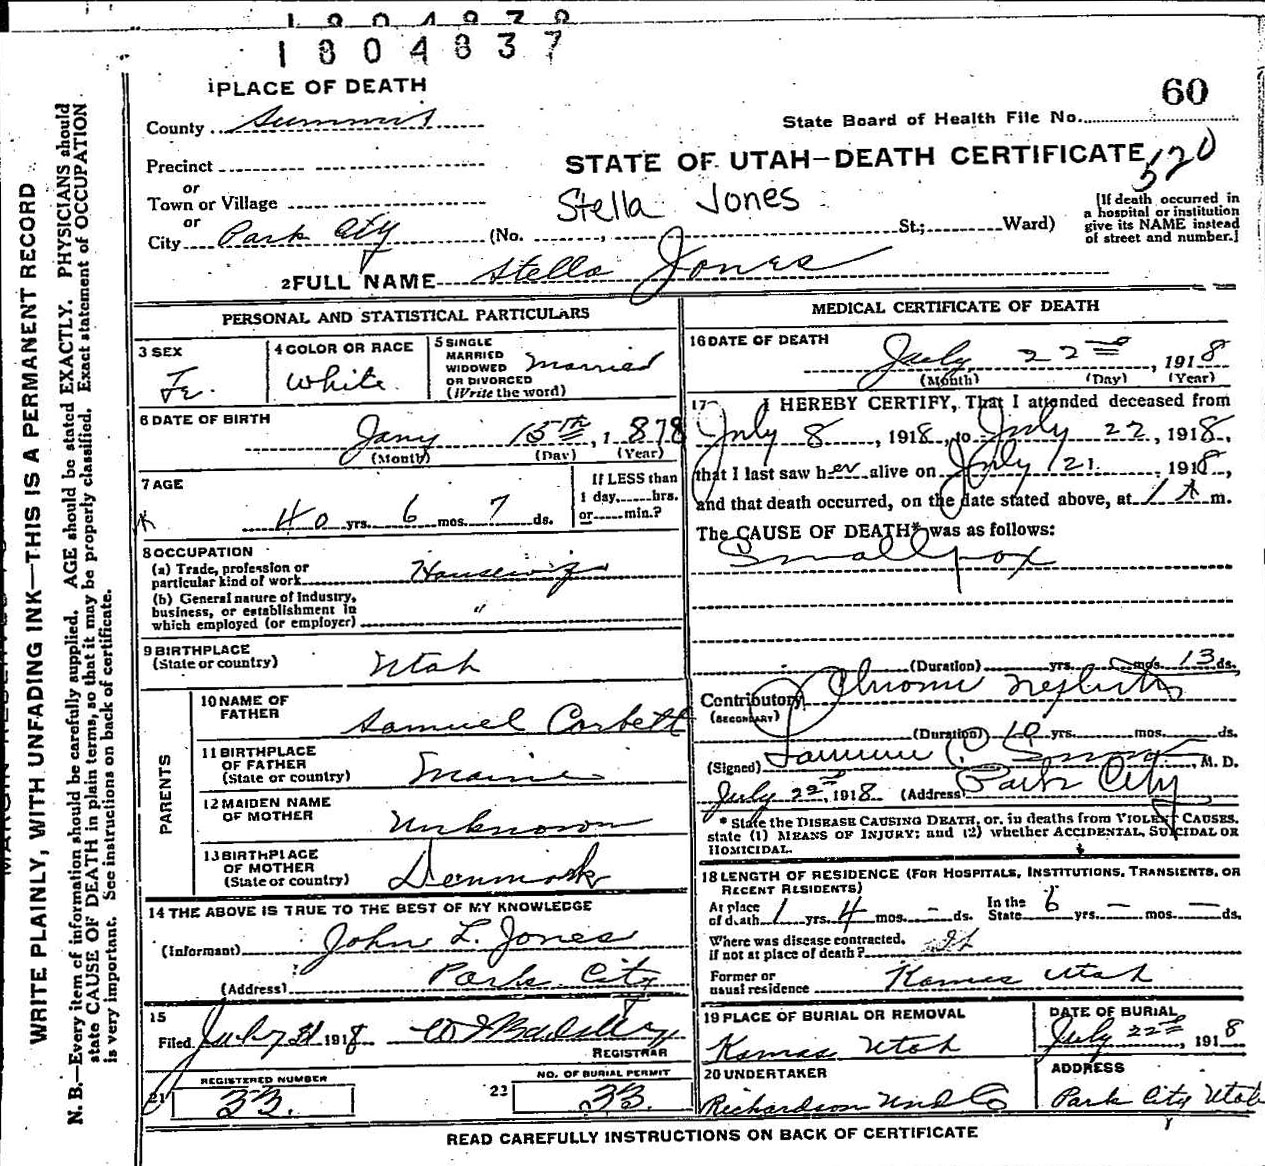 1804837
1 PLACE OF DEATH
60
County Summit
State Board of Health File No.
Precinct
STATE OF UTAH—DEATH CERTIFICATE
520
or
Town or Village
Stella Jones
or
City Park City (No. , St.; Ward)
[If death occurred in
a hospital or institution
give its NAME instead
of street and number.]
2 FULL NAME Stella Jones
PERSONAL AND STATISTICAL PARTICULARS
3 SEX
Fe.
4 COLOR OR RACE
White.
5 SINGLE
MARRIED
WIDOWED
OR DIVORCED
(Write the word)
Married
6 DATE OF BIRTH
Jany 15th, 1878
(Month) (Day) (Year)
7 AGE
40 yrs. 6 mos. 7 ds.
If LESS than
1 day, hrs.
or min.?
8 OCCUPATION
(a) Trade, profession or
particular kind of work Housewife
(b) General nature of industry,
business, or establishment in
which employed (or employer) "
9 BIRTHPLACE
(State or country) Utah
PARENTS
10 NAME OF
FATHER Samuel Corbett
11 BIRTHPLACE
OF FATHER
(State or country) Maine
12 MAIDEN NAME
OF MOTHER Unknown
13 BIRTHPLACE
OF MOTHER
(State or country) Denmark
14 THE ABOVE IS TRUE TO THE BEST OF MY KNOWLEDGE
(Informant) John L. Jones
(Address) Park City
15
Filed July 31 1918
REGISTRAR
REGISTERED NUMBER
21 33.
NO. OF BURIAL PERMIT
22 33.
MEDICAL CERTIFICATE OF DEATH
16 DATE OF DEATH
July 22nd, 1918
(Month) (Day) (Year)
17 I HEREBY CERTIFY, That I attended deceased from
July 8, 1918, to July 22, 1918,
that I last saw her alive on July 21, 1918,
and that death occurred, on the date stated above, at 1 A m.
The CAUSE OF DEATH* was as follows:
Smallpox
(Duration) yrs. mos. 13 ds.
Contributory Chronic Nephritis
(SECONDARY)
(Duration) 10 yrs. mos. ds.
(Signed) Snow, M. D.
July 22nd, 1918 (Address) Park City
* State the DISEASE CAUSING DEATH, or, in deaths from VIOLENT CAUSES,
state (1) MEANS OF INJURY; and (2) whether ACCIDENTAL, SUICIDAL OR
HOMICIDAL.
18 LENGTH OF RESIDENCE (FOR HOSPITALS, INSTITUTIONS, TRANSIENTS, OR
RECENT RESIDENTS)
At place
of death 1 yrs. 4 mos. - ds.
In the
State 6 yrs. — mos. — ds.
Where was disease contracted,
if not at place of death?
Former or
usual residence Kamas Utah
19 PLACE OF BURIAL OR REMOVAL
Kamas Utah
DATE OF BURIAL
July 22nd, 1918
20 UNDERTAKER
Richardson Und Co
ADDRESS
Park City Utah
READ CAREFULLY INSTRUCTIONS ON BACK OF CERTIFICATE
WRITE PLAINLY, WITH UNFADING INK—THIS IS A PERMANENT RECORD
N. B.—Every item of information should be carefully supplied. AGE should be stated EXACTLY. PHYSICIANS should
state CAUSE OF DEATH in plain terms, so that it may be properly classified. Exact statement of OCCUPATION
is very important. See instructions on back of certificate.